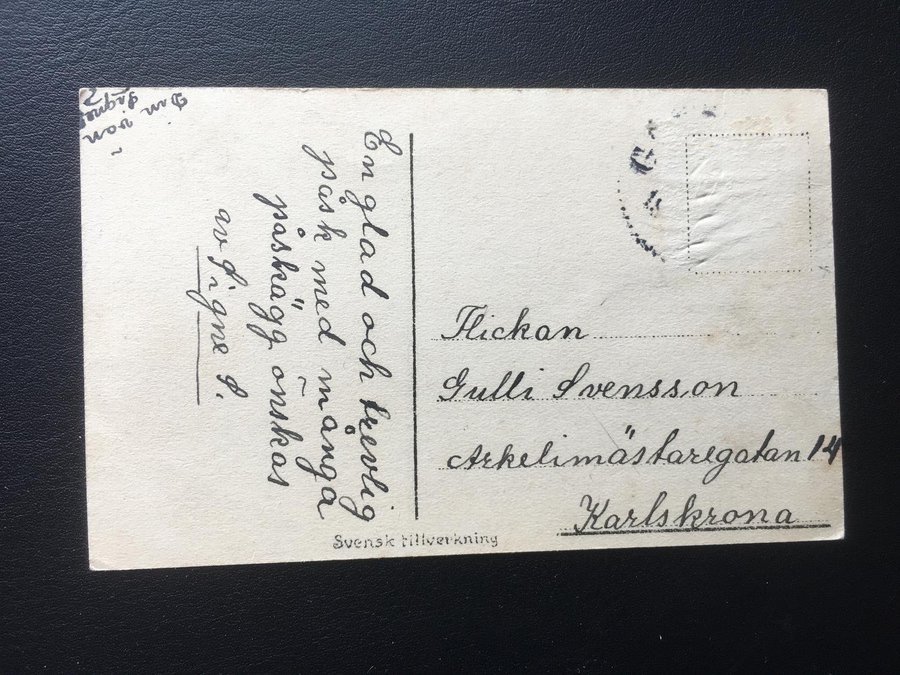 Din vän
Signe
En glad och trevlig
påsk med många
påskägg önskas
av Signe S.
Flickan
Gulli Svensson
Arkelimästaregatan 14
Karlskrona
Svensk tillverkning